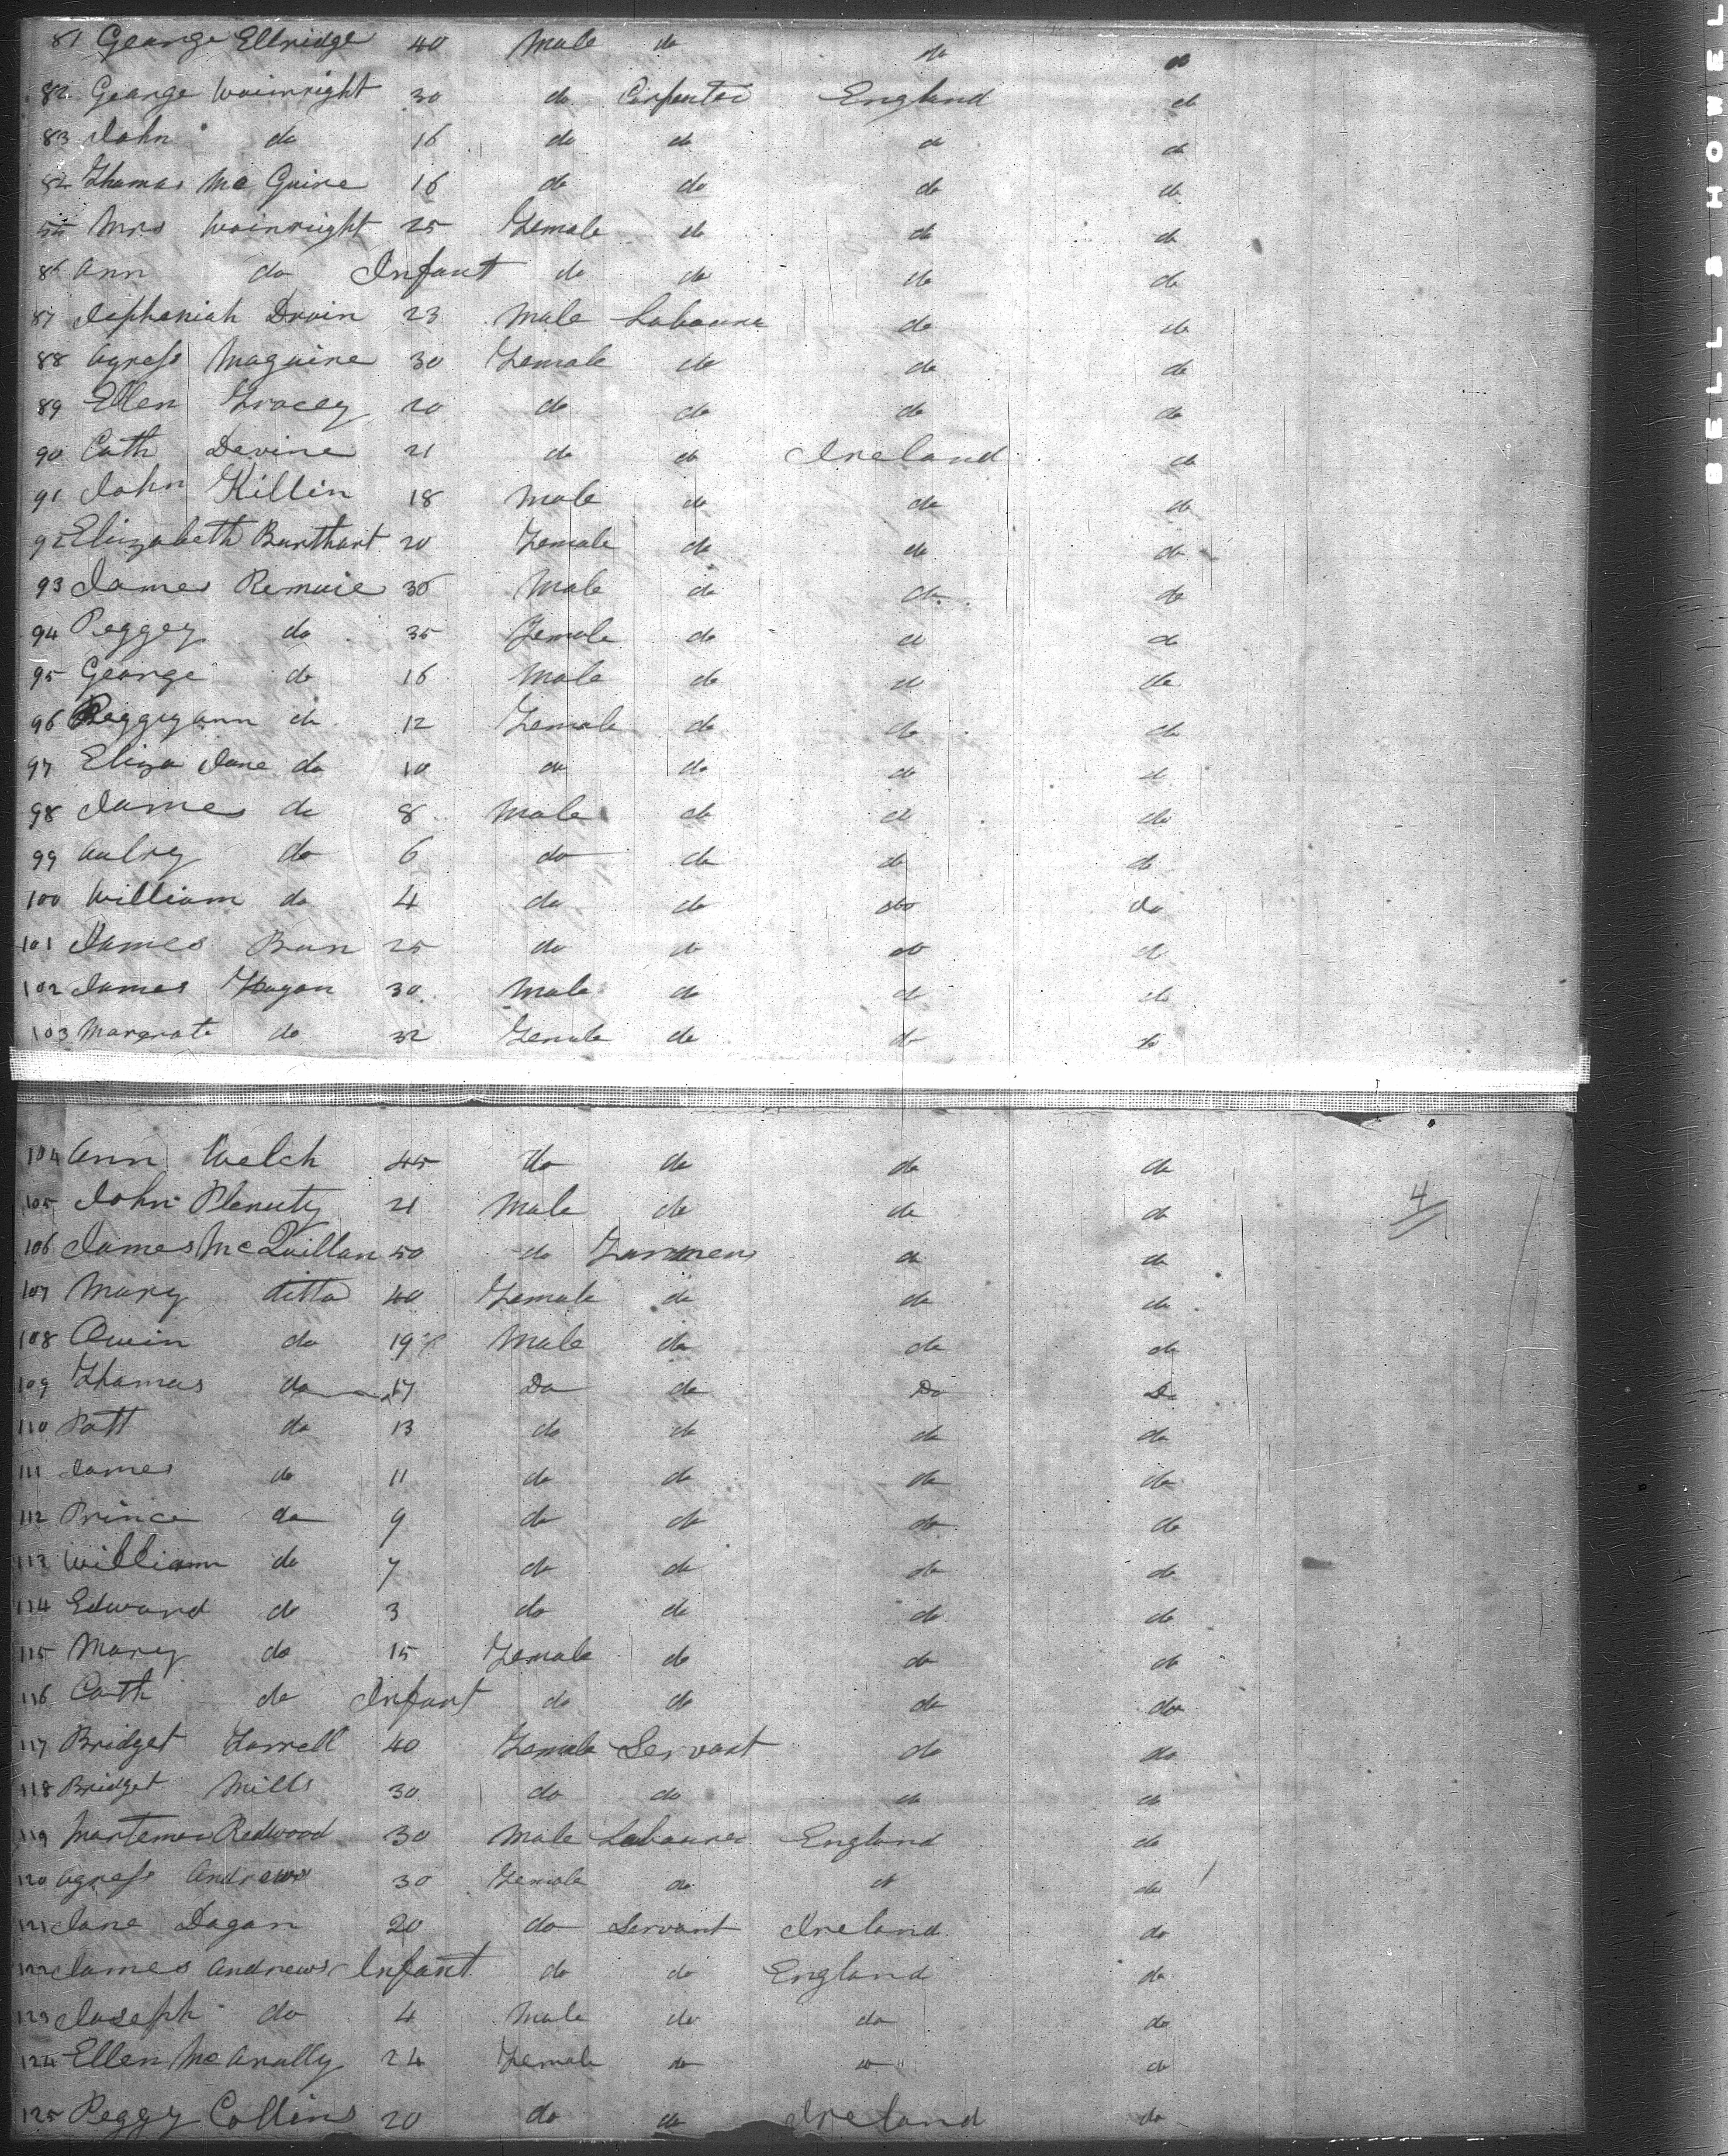 81 George Ellridge 40 Male do do do
82 George Wainright 30 do Carpenter England do
83 John do 16 do do do do
84 Thomas McGuire 16 do do do do
85 Mrs Wainright 25 Female do do do
86 Ann do Infant do do do do
87 Josphaniah Drain 23 Male Labourer do do
88 Agness Maguire 30 Female do do do
89 Ellen Tracey 20 do do do do
90 Cath Devine 21 do do Ireland do
91 John Killin 18 Male do do do
92 Elizabeth Barthart 20 Female do do do
93 James 36 Male do do do
94 Peggey do 35 Female do do do
95 George do 16 Male do do do
96 Peggyann do 12 Female do do do
97 Eliza Jane do 10 do do do do
98 James do 8 Male do do do
99 Aulry do 6 do do do do
100 William do 4 do do do do
101 James Ban 25 do do do do
102 James Hagan 30 Male do do do
103 Margrate do 32 Female do do do
104 Ann Welch 45 do do do do
105 John Plenuty 21 Male do do do
4
106 James McQuillan 50 do Farmers do do
107 Mary ditto 40 Female do do do
108 Owin do 19 Male do do do
109 Thomas do 17 Do do Do Do
110 Patt do 13 do do do do
111 James do 11 do do do do
112 Prince do 9 do do do do
113 William do 7 do do do do
114 Edward do 3 do do do do
115 Mary do 15 Female do do do
116 Cath do Infant do do do do
117 Bridget Farrell 40 Female Servant do do
118 Bridget Mills 30 do do do do
119 Redwood 30 Male Labourer England do
120 Agness Andrews 30 Female do do do
121 Jane Dagan 20 do Servant Ireland do
122 James Andrews Infant do do England do
123 Joseph do 4 Male do do do
124 Ellen McAnally 24 Female do do do
125 Peggy Collins 20 do do Ireland do
BELL & HOWEL